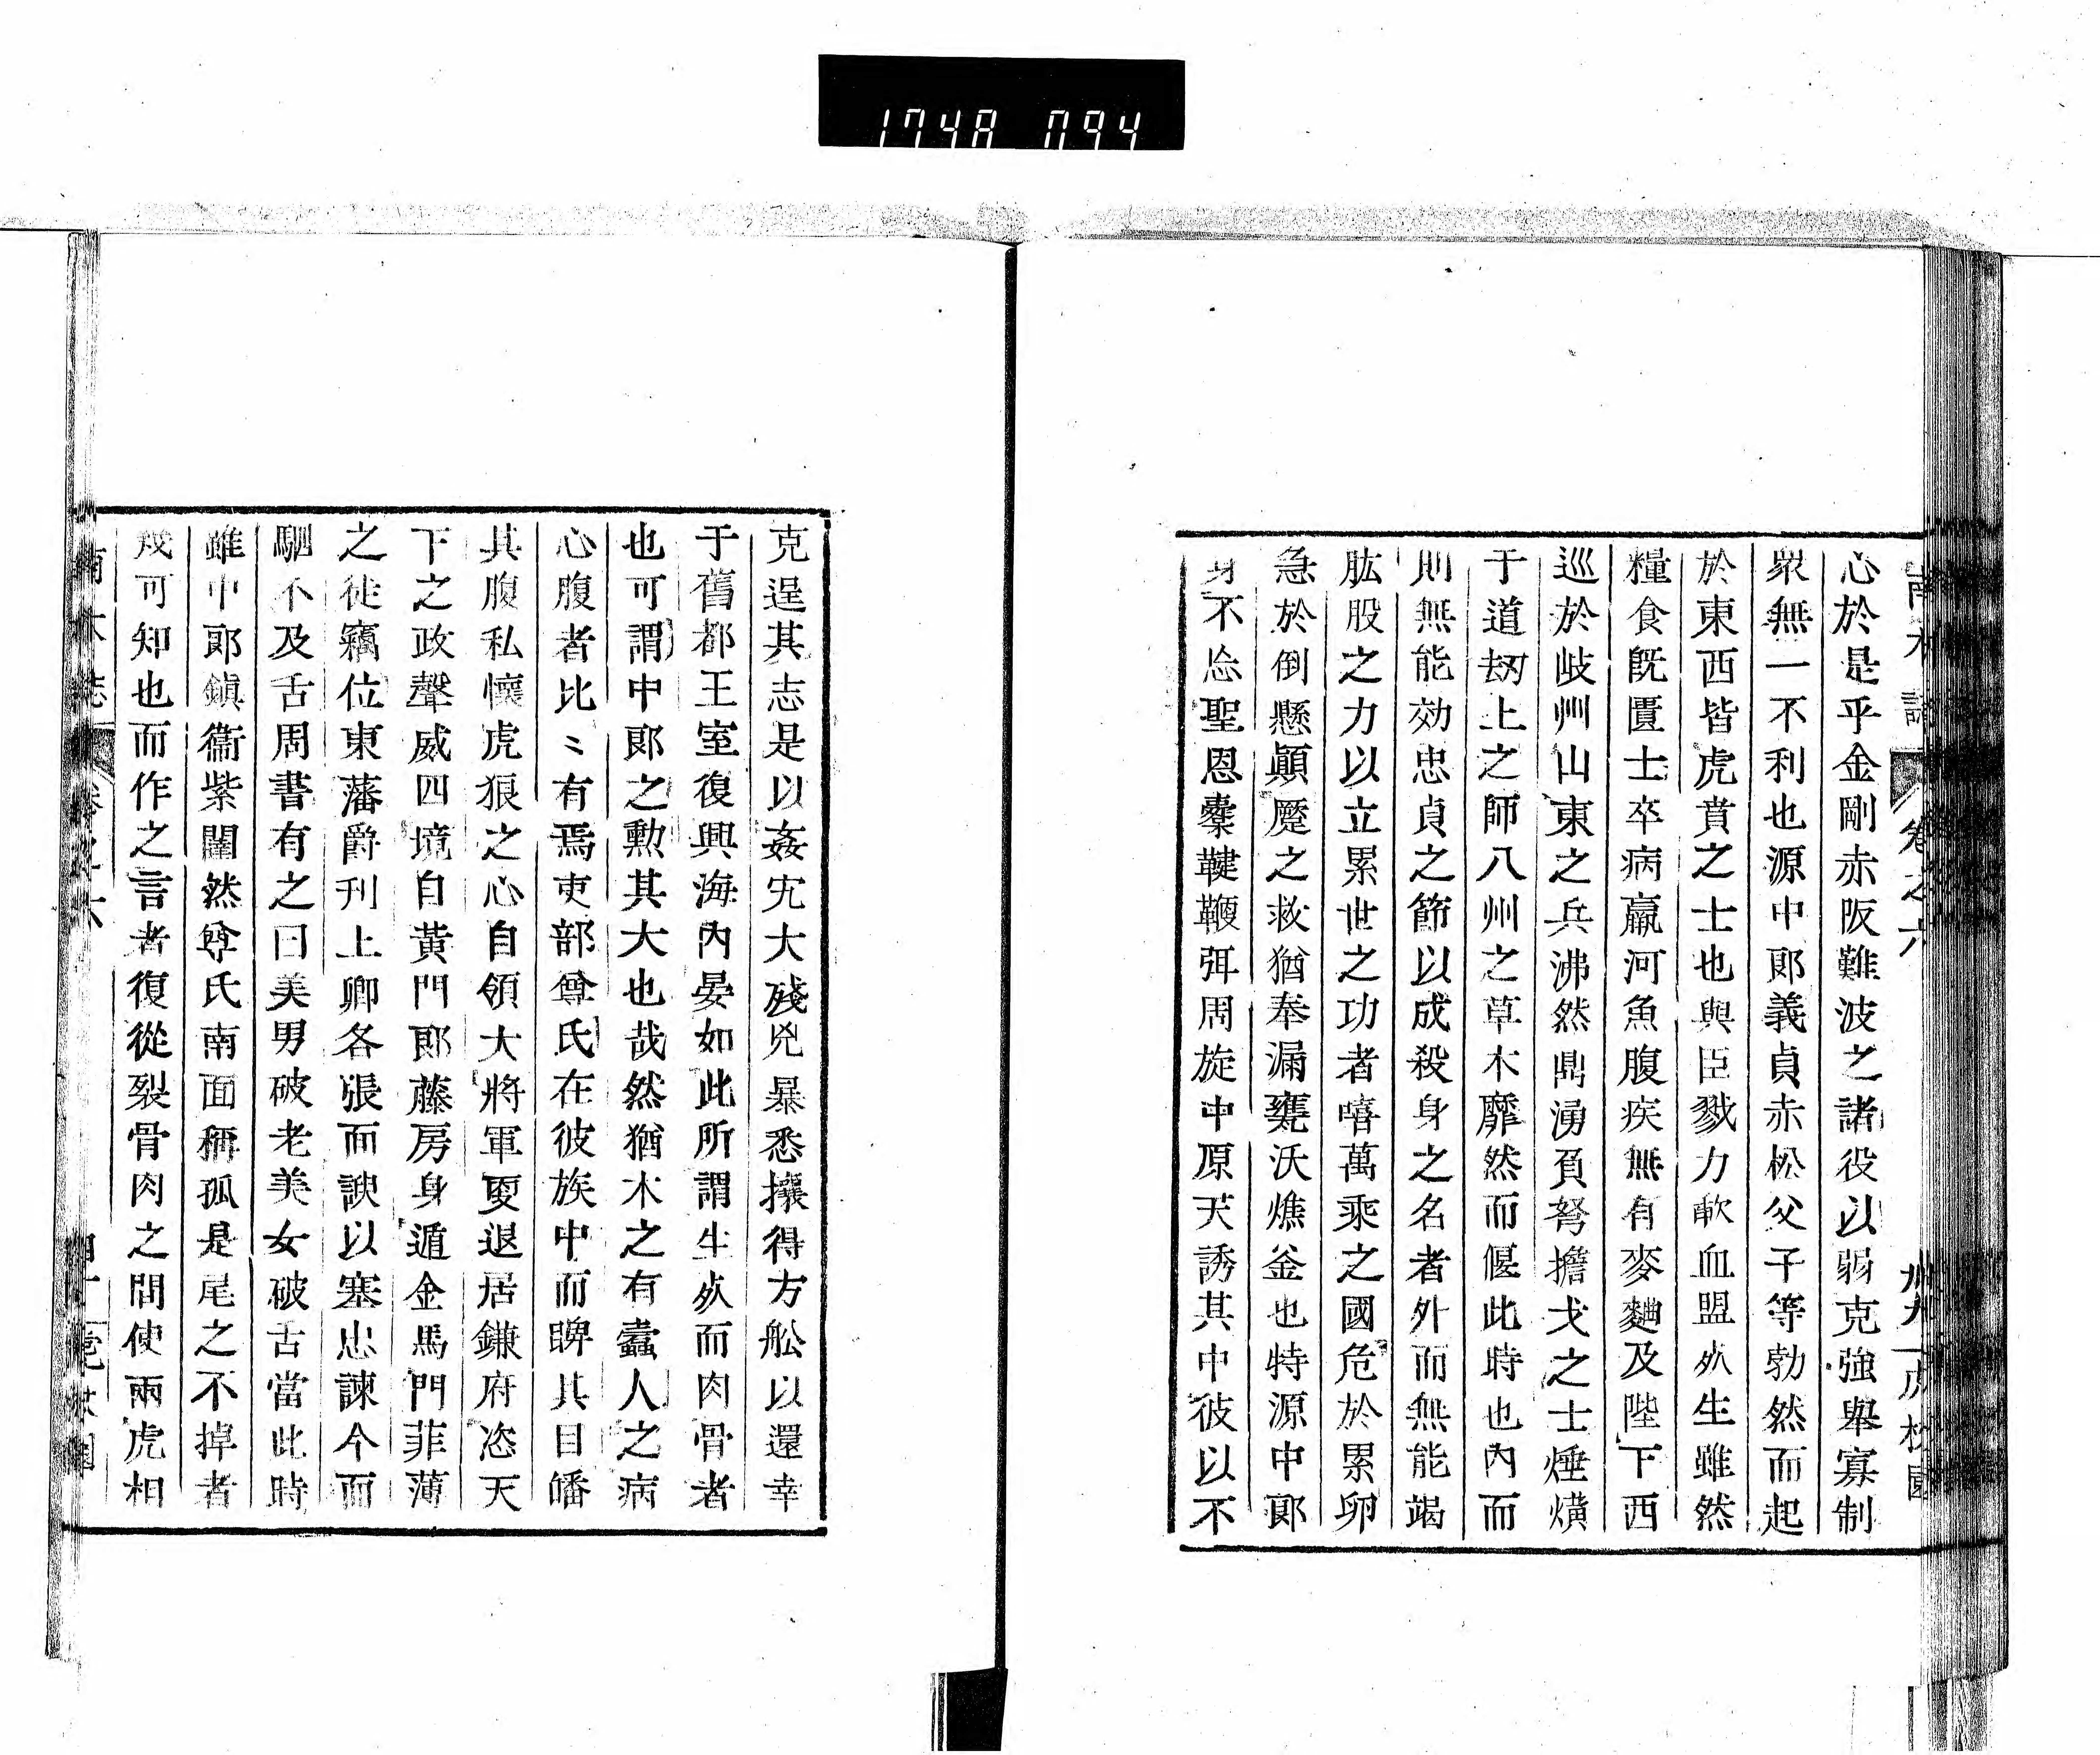 1748 094
心於是乎金剛赤阪難波之諸役以弱克強舉寡制
衆無一不利也源中郎義貞赤松父子等勃然而起
於東西皆虎賁之士也與臣戮力歃血盟㱔生雖然
糧食既匱士卒病羸河魚腹疾無有麥麯及陛下西
巡於歧州山東之兵沸然鼎湧負弩擔戈之士煙熿
于道刼上之師八州之草木靡然而偃此時也內而
則無能効忠貞之節以成殺身之名者外而無能竭
肱股之力以立累世之功者嘻萬乘之國危於累卵
急於倒懸顚蹷之救猶奉漏甕沃燋釜也特源中郎
身不忘聖恩櫜鞬鞭弭周旋中原天誘其中彼以不
克逞其志是以姦宄大殘兇暴悉攘得方舩以還幸
于舊都王室復興海內晏如此所謂生㱔而肉骨者
也可謂中郎之勲其大也哉然猶木之有蠹人之病
心腹者比〻有焉吏部尊氏在彼族中而睥其目皤
其腹私懷虎狼之心自領大將軍更退居鎌府恣天
下之政聲威四境自黃門郎藤房身遁金馬門菲薄
之徒竊位東藩爵列上卿各張而諛以塞忠諫今而
駟不及舌周書有之曰美男破老美女破舌當此時
雖中郎鎮衞紫闥然尊氏南面稱孤是尾之不掉者
幾可知也而作之言者復從裂骨肉之間使兩虎相